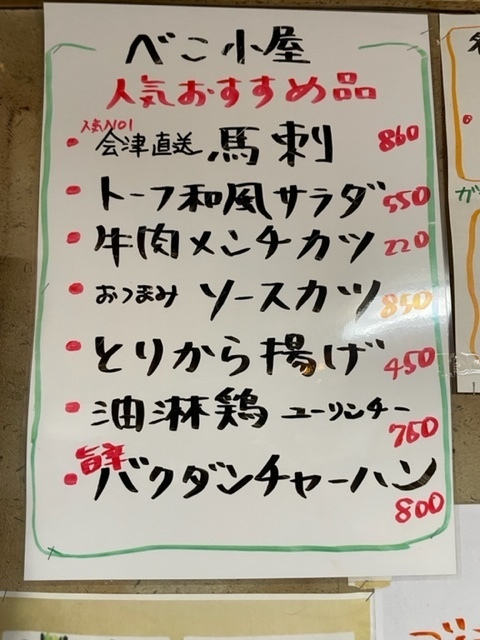 べこ小屋
人気おすすめ品
人気NO1
会津直送 馬刺 860
トーフ和風サラダ 550
牛肉メンチカツ 220
おつまみ ソースカツ 850
とりから揚げ 450
油淋鶏 ユーリンチー 760
旨辛
バクダンチャーハン 800